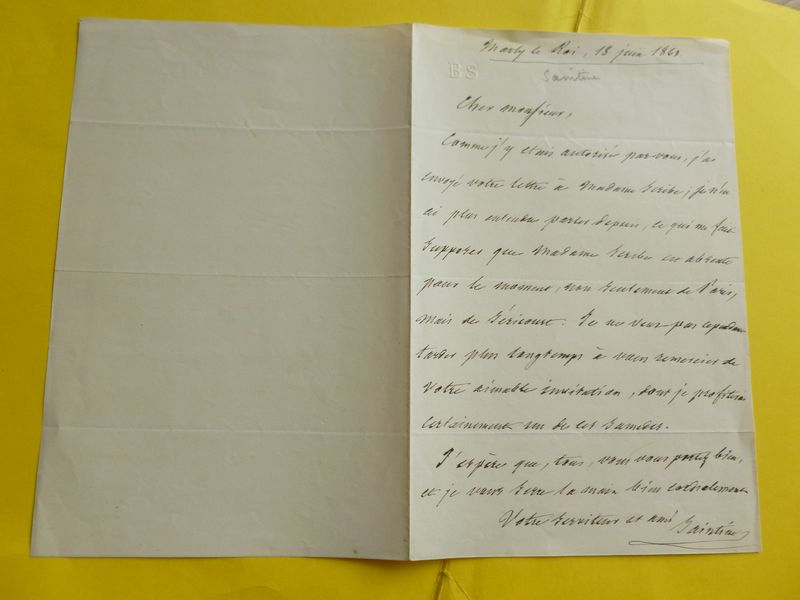 Marly le Roi, 18 juin 1861
BS
Saintine
Cher monsieur,
Comme j'y étais autorisé par vous, j'ai
envoyé votre lettre à Madame Scribe; je n'en
ai plus entendu parler depuis, ce qui me fait
supposer que Madame Scribe est absente
pour le moment, non seulement de Paris,
mais de Séricourt. Je ne veux pas cependant
tarder plus longtemps à vous remercier de
votre aimable invitation, dont je profiterai
certainement un de ces samedis.
J'espère que, tous, vous vous portez bien,
et je vous serre la main bien cordialement
Votre serviteur et ami
Saintine